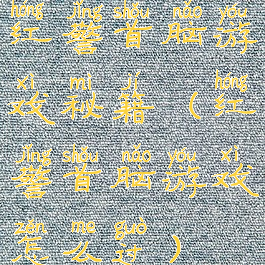 hóng jǐng shǒu nǎo yóu
红警首脑游
xì mì jí hóng
戏秘籍(红
jǐng shǒu nǎo yóu xì
警首脑游戏
zěn me guò
怎么过)